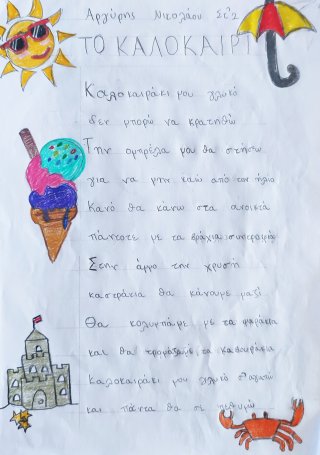 Αργύρης Νικολάου Στ'2
ΤΟ ΚΑΛΟΚΑΙΡΙ
Καλοκαιράκι μου γλυκό
δεν μπορώ να κρατηθώ
Την ομπρέλα μου θα στήσω
για να μην καώ από τον ήλιο
Κανό θα κάνω στα ανοικτά
πάντοτε με τα βράχια συντροφιά
Στην άμμο την χρυσή
καστράκια θα κάνουμε μαζί
Θα κολυμπάμε με τα ψαράκια
και θα τρομάζαμε τα καβουράκια
Καλοκαιράκι μου γλυκό
και πάντα θα σε